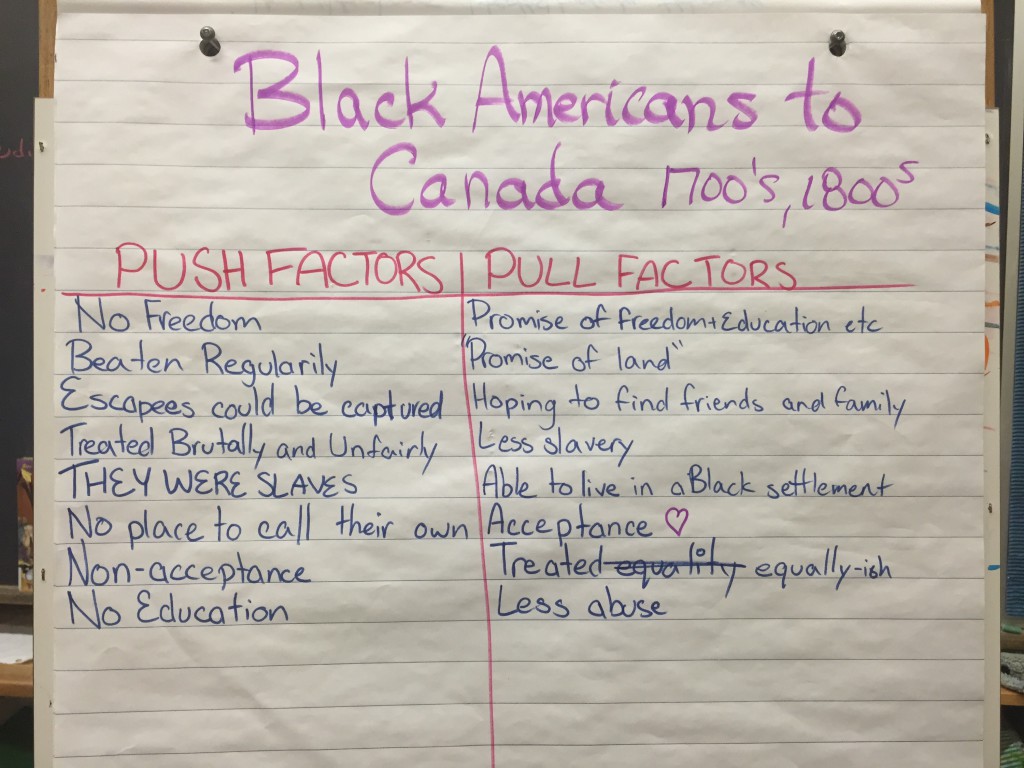 Black Americans to
Canada 1700's, 1800s
PUSH FACTORS | PULL FACTORS
No Freedom
Beaten Regularily
Escapees could be captured
Treated Brutally and Unfairly
THEY WERE SLAVES
No place to call their own
Non-acceptance
No Education
Promise of freedom+Education etc
"Promise of land"
Hoping to find friends and family
Less slavery
Able to live in a Black settlement
Acceptance ♡
Treated equality equally-ish
Less abuse